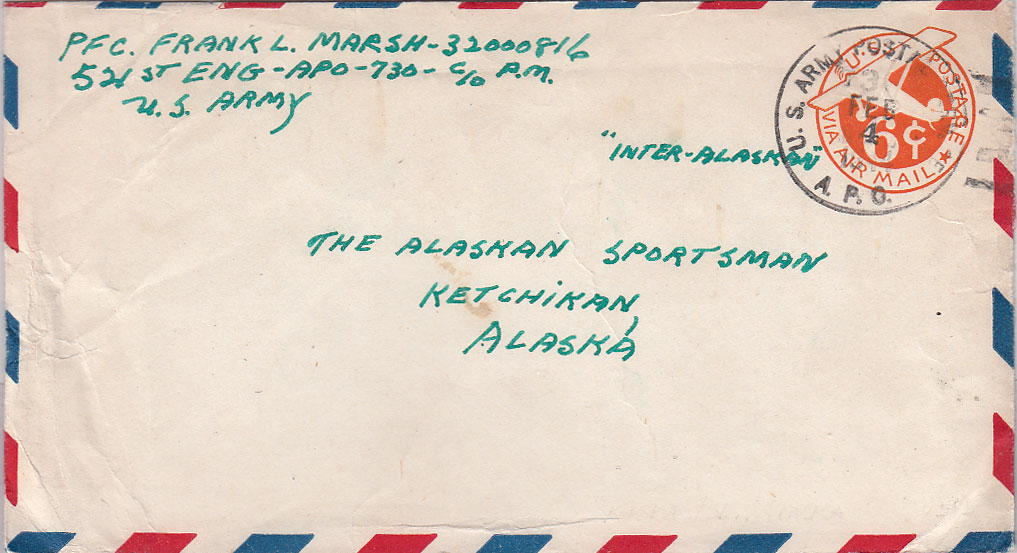 PFC. FRANK L. MARSH-32000816
521ST ENG-APO-730-C/O P.M.
U.S. ARMY
"INTER-ALASKAN"
U.S. ARMY POSTAL
FEB
4
A.P.O.
U.S. POSTAGE
6¢
VIA AIR MAIL
THE ALASKAN SPORTSMAN
KETCHIKAN,
ALASKA